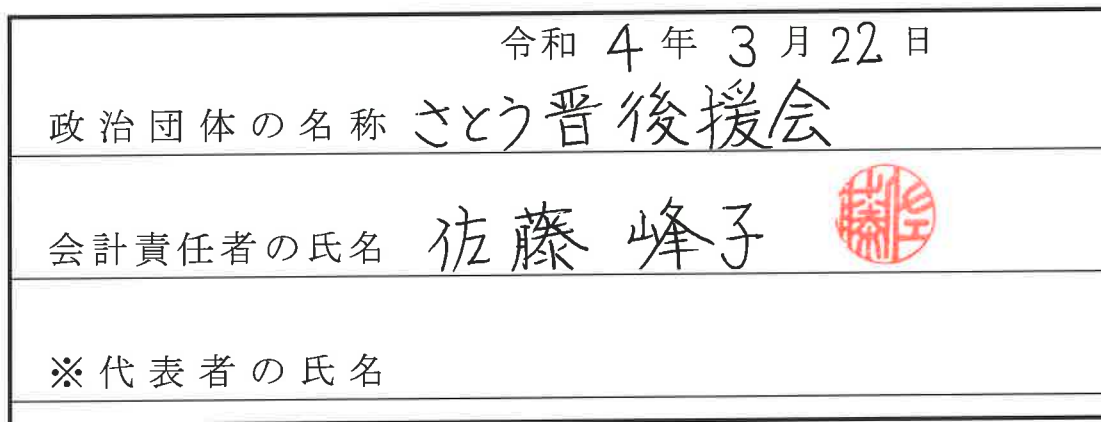 令和 4 年 3 月 22 日
政治団体の名称 さとう晋後援会
会計責任者の氏名 佐藤 峰子 佐藤
※代表者の氏名